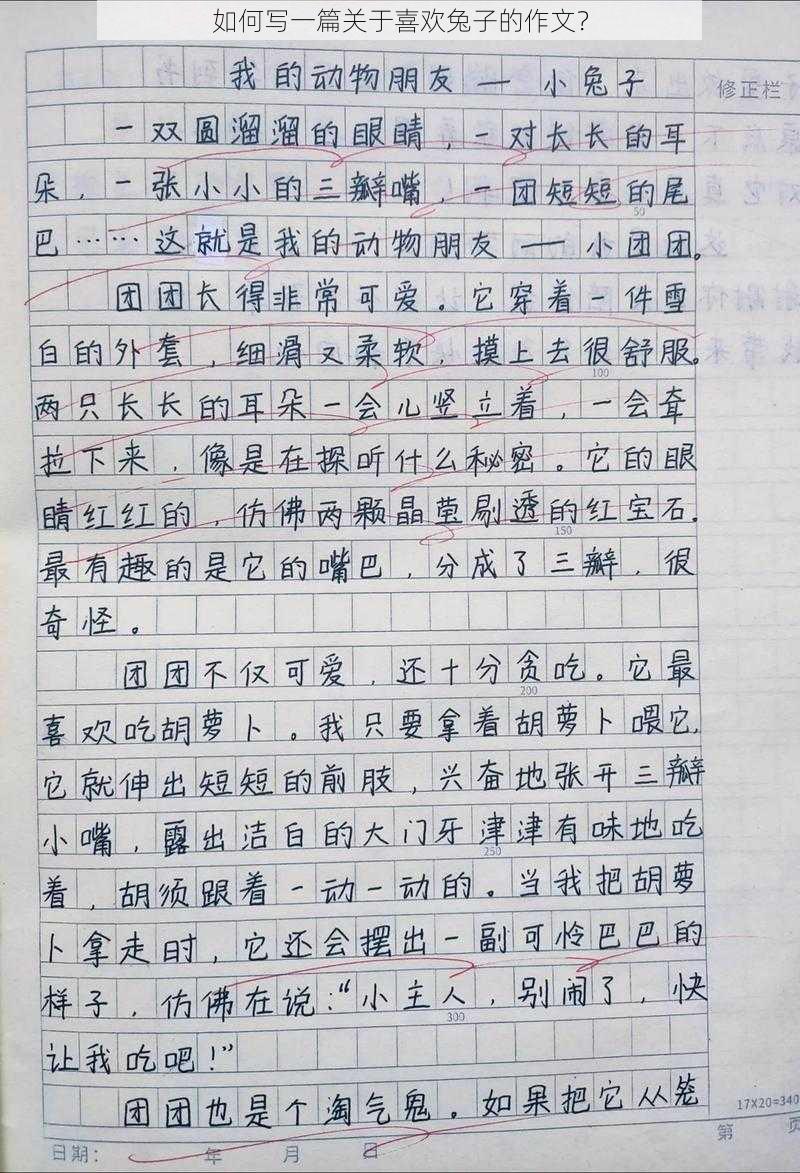 如何写一篇关于喜欢兔子的作文？
我的动物朋友——小兔子
修正栏
一双圆溜溜的眼睛，一对长长的耳
朵，一张小小的三瓣嘴，一团短短的尾
50
巴……这就是我的动物朋友——小团团。
团团长得非常可爱。它穿着一件雪
白的外套，细滑又柔软，摸上去很舒服。
100
两只长长的耳朵一会儿竖立着，一会耷
拉下来，像是在探听什么秘密。它的眼
睛红红的，仿佛两颗晶莹剔透的红宝石。
150
最有趣的是它的嘴巴，分成了三瓣，很
奇怪。
团团不仅可爱，还十分贪吃。它最
200
喜欢吃胡萝卜。我只要拿着胡萝卜喂它，
它就伸出短短的前肢，兴奋地张开三瓣
小嘴，露出洁白的大门牙津津有味地吃
250
着，胡须跟着一动一动的。当我把胡萝
卜拿走时，它还会摆出一副可怜巴巴的
样子，仿佛在说：“小主人，别闹了，快
300
让我吃吧！”
团团也是个淘气鬼。如果把它从笼
17X20=340
日期： 年 月 日
第 页